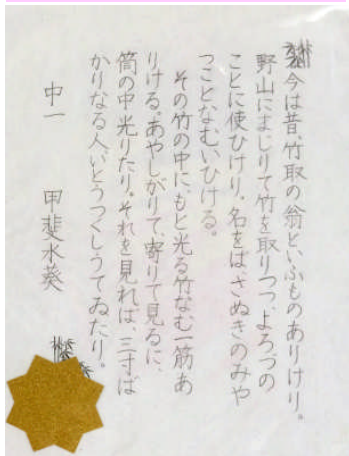 今は昔、竹取の翁といふものありけり。
野山にまじりて竹を取りつつ、よろづの
ことに使ひけり。名をば、さぬきのみや
つことなむいひける。
その竹の中に、もと光る竹なむ一筋あ
りける。あやしがりて、寄りて見るに、
筒の中光りたり。それを見れば、三寸ば
かりなる人、いとうつくしうてゐたり。
中一 甲斐水葵